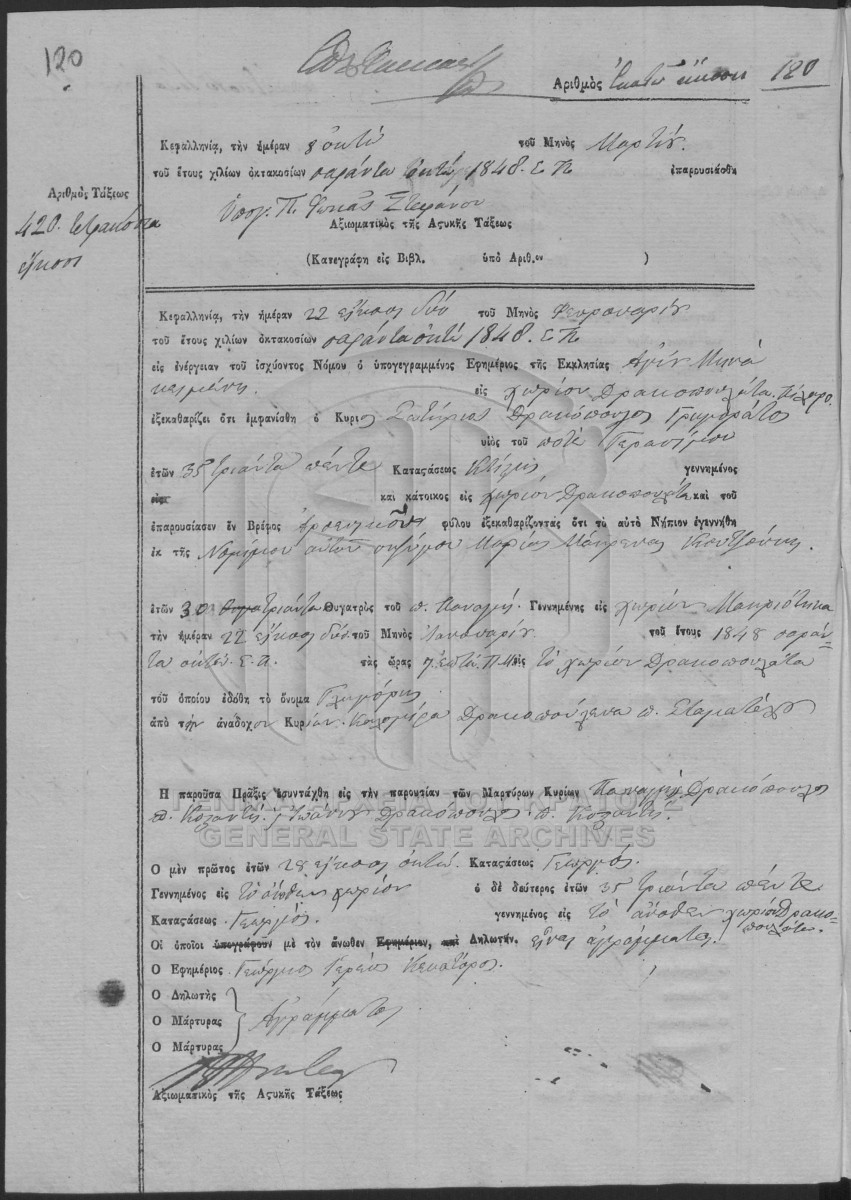 120
Ἀριθμὸς ἑκατὸ ἤκοσι 120
Κεφαλληνίᾳ, τὴν ἡμέραν 8 ὀκτὼ τοῦ Μηνὸς Μαρτίου
τοῦ ἔτους χιλίων ὀκτακοσίων σαράντα ὀκτώ 1848. Ε. Π. ἐπαρουσιάσθη
Ἀριθμὸς Τάξεως
420. τετρακόσια
ἤκοσι
Ὑπογ. Π. Φωκᾶς Στεφάνου
Ἀξιωματικὸς τῆς Ἀστυκῆς Τάξεως
(Κατεγράφη εἰς Βιβλ. ὑπὸ Ἀριθ.ον )
Κεφαλληνίᾳ, τὴν ἡμέραν 22 εἴκοσι δύο τοῦ Μηνὸς Φευρουαρίου
τοῦ ἔτους χιλίων ὀκτακοσίων σαράντα ὀκτώ 1848. Ε. Π.
εἰς ἐνέργειαν τοῦ ἰσχύοντος Νόμου ὁ ὑπογεγραμμένος Ἐφημέριος τῆς Ἐκκλησίας Ἁγίου Μηνᾶ
εἰς χωρίον Δρακοπουλάτα
ἐξεκαθαρίζει ὅτι ἐμφανίσθη ὁ Κυριος Σωτήριος Δρακόπουλος Γρηγοράτος
υἱὸς τοῦ ποτὲ Γερασίμου
ἐτῶν 35 τριάντα πέντε Καταςάσεως Κτίστης γεννημένος
εἰς καὶ κάτοικος εἰς χωρίον Δρακοπουλάτα καὶ τοῦ
ἐπαρουσίασεν ἓν Βρέφος ἀρσενικοῦ φύλου ἐξεκαθαρίζοντας ὅτι τὸ αὐτὸ Νήπιον ἐγεννήθη
ἐκ τῆς Νομίμου αὐτοῦ συζύγου Μαρίας
ἐτῶν 30 τριάντα Θυγατρὸς τοῦ π. Παναγῆ. Γεννημένης εἰς χωρίον Μακριότηκα
τὴν ἡμέραν 22 εἴκοσι δύο τοῦ Μηνὸς Ἰανουαρίου τοῦ ἔτους 1848 σαράν-
τα ὀκτώ. Ε. Π. τὰς ὥρας 7 ἑπτά Π.Μ. εἰς τὸ χωρίον Δρακοπουλάτα
τοῦ ὁποίου ἐδόθη τὸ ὄνομα Γληγόρης
ἀπὸ τὴν ἀνάδοχον Κυρίαν Καλομοίρα Δρακοπούλενα π. Σταματέλου
Ἡ παροῦσα Πρᾶξις ἐσυντάχθη εἰς τὴν παρουσίαν τῶν Μαρτύρων Κυρίων Παναγῆ Δρακόπουλος
π. Κοσαντῆ. Ἰωάννη Δρακόπουλος π. Κοσαντῆ.
ΓΕΝΙΚΑ ΑΡΧΕΙΑ ΤΟΥ ΚΡΑΤΟΥΣ
GENERAL STATE ARCHIVES
Ὁ μὲν πρῶτος ἐτῶν 28 εἴκοσι ὀκτώ. Καταςάσεως Γεωργός.
Γεννημένος εἰς τὸ ἄνωθεν χωρίον ὁ δὲ δεύτερος ἐτῶν 35 τριάντα πέντε
Καταςάσεως Γεωργός. γεννημένος εἰς τὸ ἄνωθεν χωρίον Δρακο-
πουλάτα.
Οἱ ὁποῖοι ὑπογράφουν μὲ τὸν ἄνωθεν Ἐφημέριον, καὶ Δηλωτήν. εἶναι ἀγράμματοι.
Ὁ Ἐφημέριος Γεώργιος Ἱερεὺς
Ὁ Δηλωτής
Ὁ Μάρτυρας Ἀγράμματοι
Ὁ Μάρτυρας
Ἀξιωματικὸς τῆς Ἀστυκῆς Τάξεως